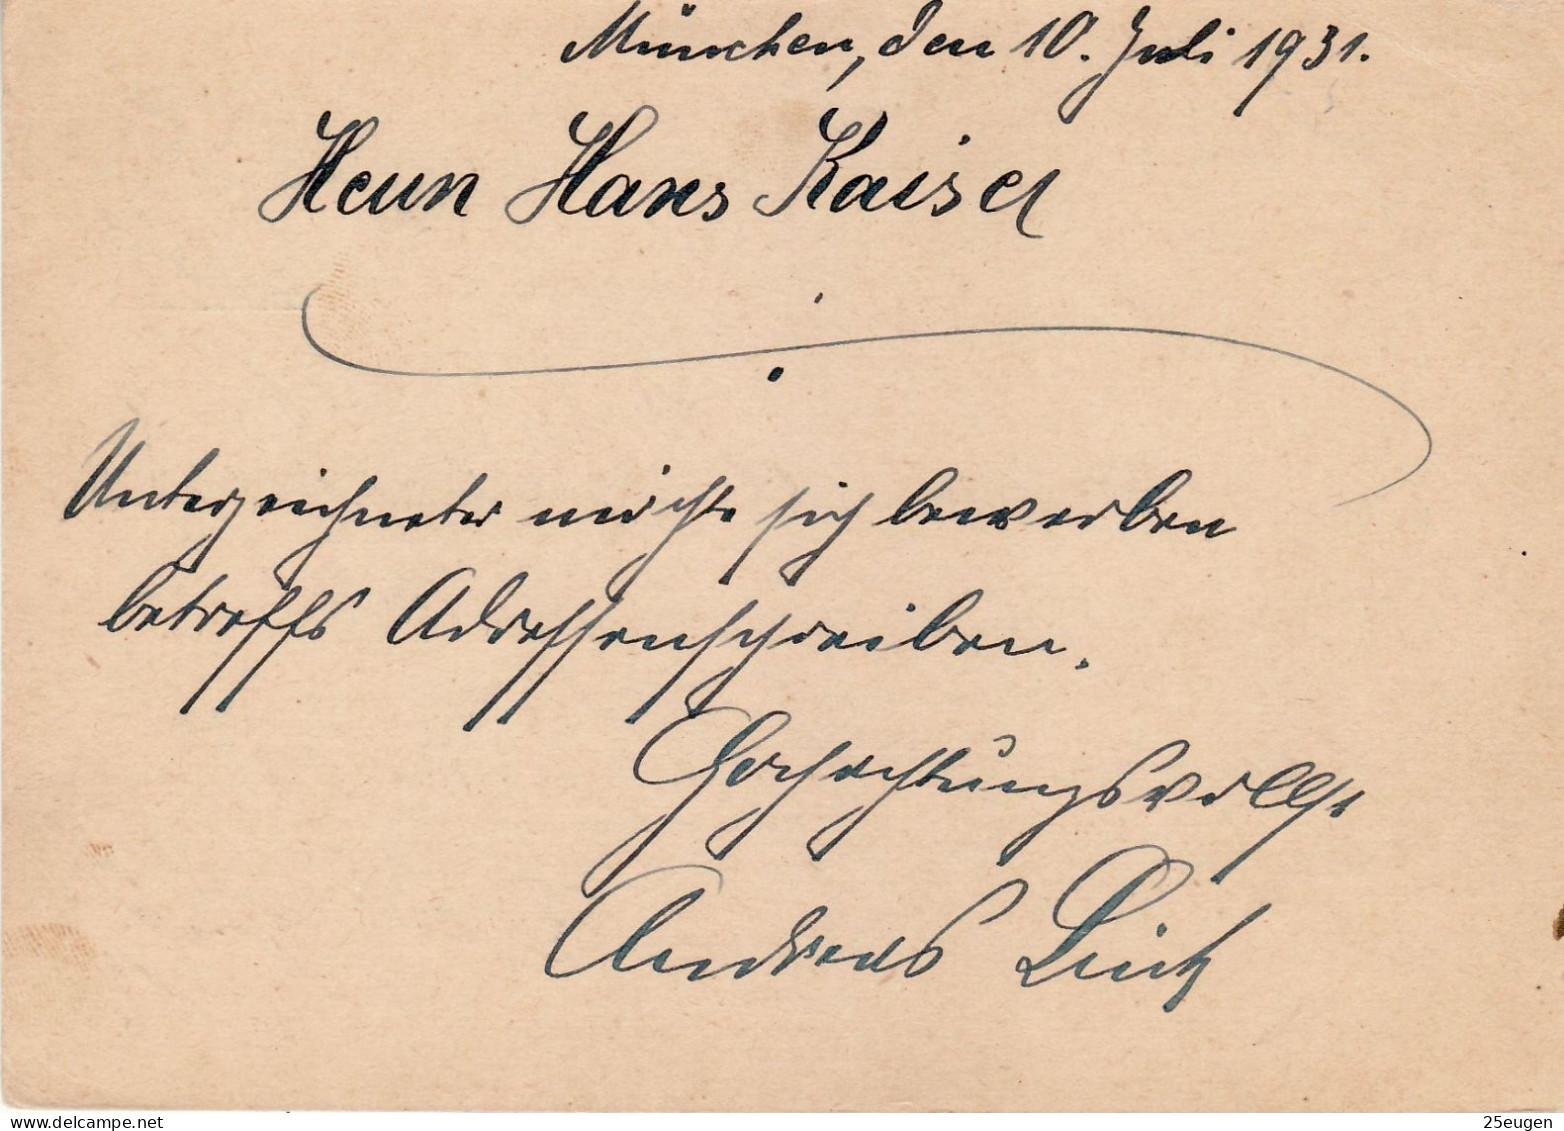 München, den 10. Juli 1931.
Herrn Hans Kaiser
Unterzeichneter möchte sich bewerben
betreffs Adressenschreiben.
Hochachtungsvollst
Andreas
www.delcampe.net
25eugen